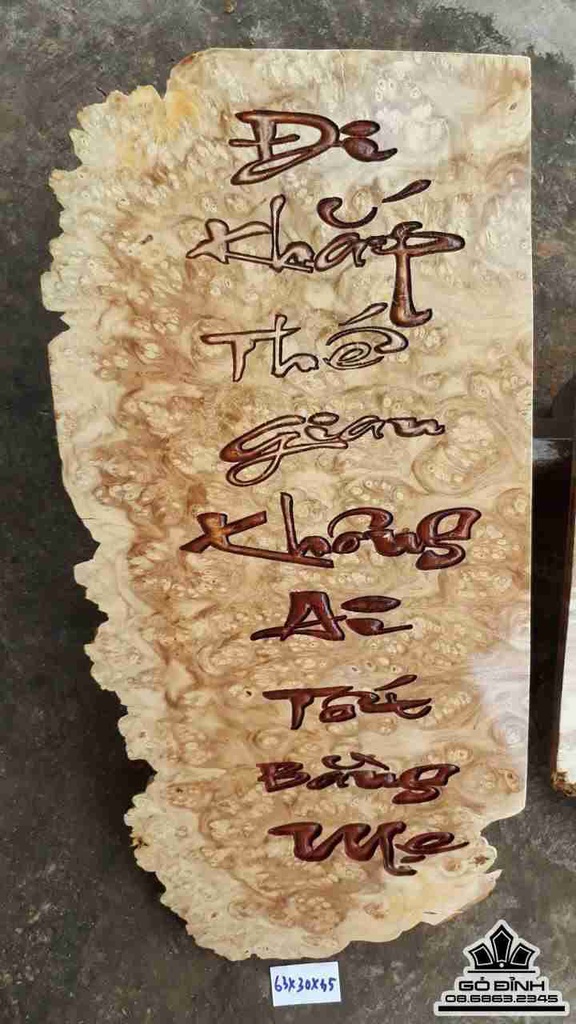 Đi
Khắp
Thế
Gian
Không
Ai
Tốt
Bằng
Mẹ
63x30x45
GỖ ĐỈNH
08.6863.2345